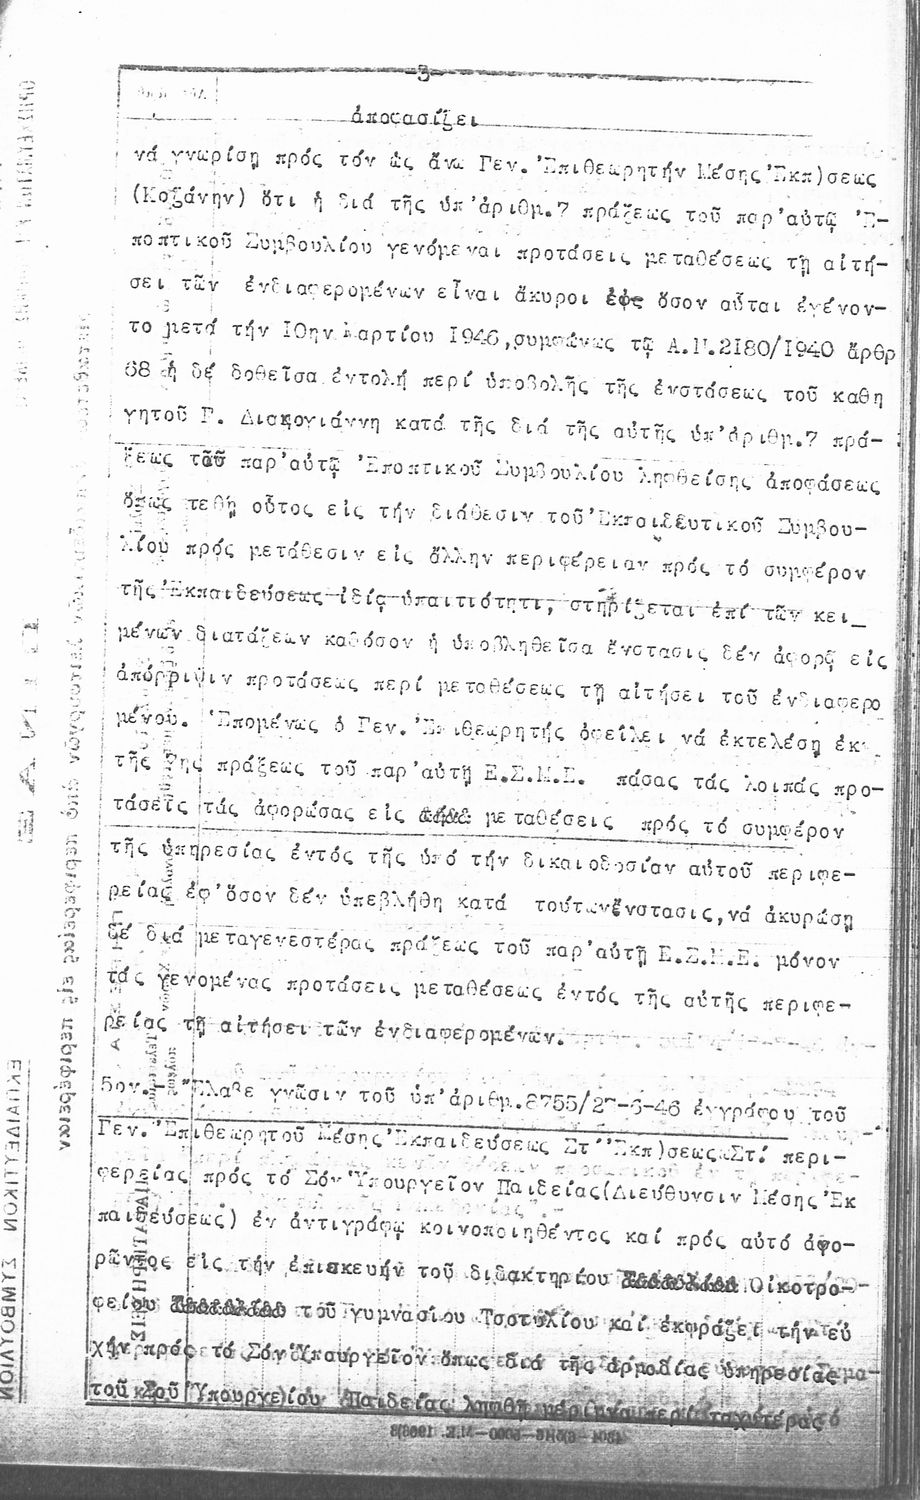 -3-
ἀποφασίζει
νά γνωρίσῃ πρός τόν ὡς ἄνω Γεν.Ἐπιθεωρητήν Μέσης Ἐκπ)σεως
(Κοζάνην) ὅτι ἡ διά τῆς ὑπ'ἀριθμ.7 πράξεως τοῦ παρ'αὐτῷ Ἐ-
ποπτικοῦ Συμβουλίου γενόμεναι προτάσεις μεταθέσεως τῇ αἰτή-
σει τῶν ἐνδιαφερομένων εἶναι ἄκυροι ἐφ ὅσον αὗται ἐγένον-
το μετά τήν 10ην Μαρτίου 1946,συμφώνως τῷ Α.Ν.2180/1940 ἄρθρ
68 ἡ δέ δοθεῖσα ἐντολή περί ὑποβολῆς τῆς ἐνστάσεως τοῦ καθη
γητοῦ Γ. Διακογιάννη κατά τῆς διά τῆς αὐτῆς ὑπ'ἀριθμ.7 πρά-
ξεως τοῦ παρ'αὐτῷ Ἐποπτικοῦ Συμβουλίου ληφθείσης ἀποφάσεως
ὅπως τεθῇ οὗτος εἰς τήν διάθεσιν τοῦ Ἐκπαιδευτικοῦ Συμβου-
λίου πρός μετάθεσιν εἰς ἄλλην περιφέρειαν πρός τό συμφέρον
τῆς Ἐκπαιδεύσεως ἰδίᾳ ὑπαιτιότητι, στηρίζεται ἐπί τῶν κει_
μένων διατάξεων καθόσον ἡ ὑποβληθεῖσα ἔνστασις δέν ἀφορᾷ εἰς
ἀπόρριψιν προτάσεως περί μεταθέσεως τῇ αἰτήσει τοῦ ἐνδιαφερο
μένου. Ἑπομένως ὁ Γεν.Ἐπιθεωρητής ὀφείλει νά ἐκτελέσῃ ἐκ
τῆς 7ης πράξεως τοῦ παρ'αὐτῇ Ε.Σ.Μ.Ε. πάσας τάς λοιπάς προ-
τάσεις τάς ἀφορώσας εἰς μεταθέσεις πρός τό συμφέρον
τῆς ὑπηρεσίας ἐντός τῆς ὑπό τήν δικαιοδοσίαν αὐτοῦ περιφε-
ρείας ἐφ'ὅσον δέν ὑπεβλήθη κατά τούτων ἔνστασις,νά ἀκυρώσῃ
δέ διά μεταγενεστέρας πράξεως τοῦ παρ'αὐτῇ Ε.Σ.Μ.Ε. μόνον
τάς γενομένας προτάσεις μεταθέσεως ἐντός τῆς αὐτῆς περιφε-
ρείας τῇ αἰτήσει τῶν ἐνδιαφερομένων.
5ον.- Ἔλαβε γνῶσιν τοῦ ὑπ'ἀριθμ.8755/27-6-46 ἐγγράφου τοῦ
Γεν.Ἐπιθεωρητοῦ Μέσης Ἐκπαιδεύσεως Στ΄Ἐκπ)σεως Στ΄ περι-
φερείας πρός τό Σόν Ὑπουργεῖον Παιδείας(Διεύθυνσιν Μέσης Ἐκ
παιδεύσεως) ἐν ἀντιγράφῳ κοινοποιηθέντος καί πρός αὐτό ἀφο-
ρῶντος εἰς τήν ἐπισκευήν τοῦ διδακτηρίου Οἰκοτρο-
φείου τοῦ γυμνασίου Τσοτυλίου καί ἐκφράζει τήν εὐ
χήν πρός τό Σόν Ὑπουργεῖον ὅπως διά τῆς ἁρμοδίας ὑπηρεσίας
τοῦ Σοῦ Ὑπουργείου Παιδείας ληφθῇ μέριμνα περί ταχυτέρας
ΕΚΠΑΙΔΕΥΤΙΚΟΝ ΣΥΜΒΟΥΛΙΟΝ